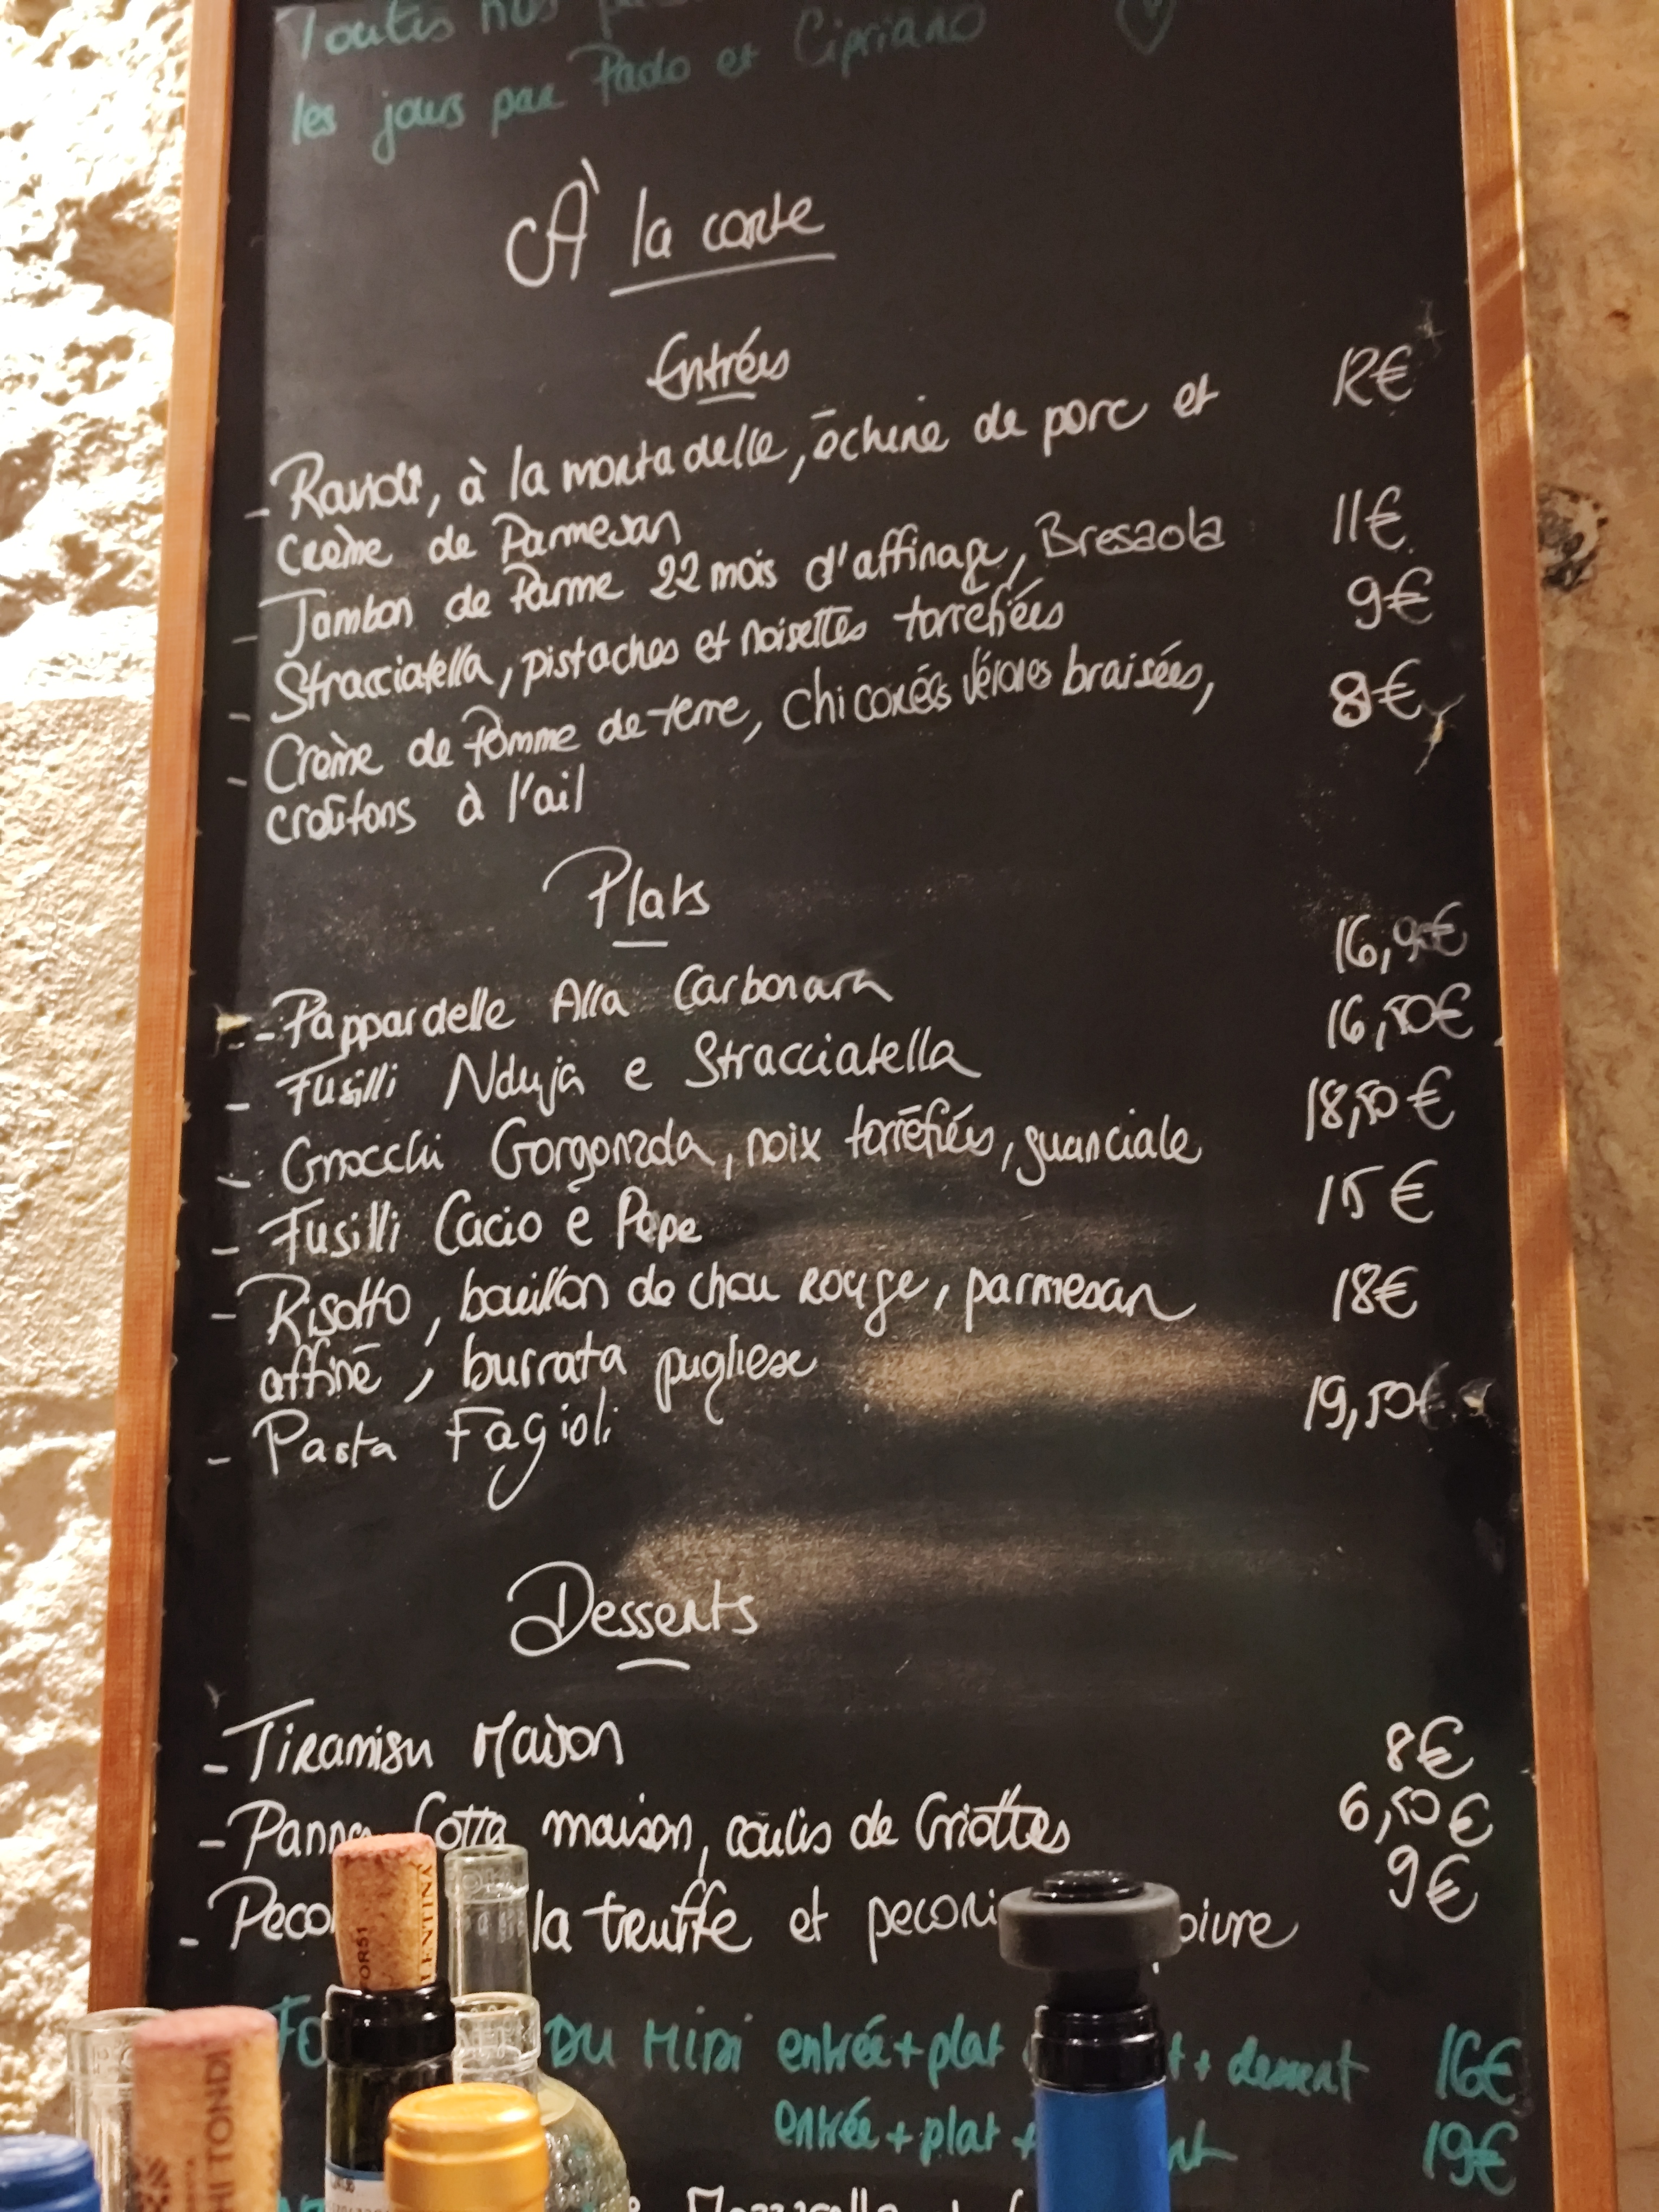 Toutes nos
les jours par Paolo et Cipriano
À la carte
Entrées
- Ravioli, à la mortadelle, échine de porc et 12€
crème de Parmesan
- Jambon de Parme 22 mois d'affinage, Bresaola 11€
- Stracciatella, pistaches et noisettes torréfiées 9€
- Crème de Pomme de terre, chicorées braisées, 8€
croûtons à l'ail
Plats
- Pappardelle Alla Carbonara 16,90€
- Fusilli Nduja e Stracciatella 16,50€
- Gnocchi Gorgonzola, noix torréfiées, guanciale 18,50€
- Fusilli Cacio è Pepe 15€
- Risotto, bouillon de chou rouge, parmesan 18€
affiné, burrata pugliese
- Pasta Fagioli 19,50€
Desserts
- Tiramisu Maison 8€
- Panna Cotta maison, coulis de Griottes 6,50€
- la truffe et 9€
DU MIDI entrée+plat + dessert 16€
entrée+plat + 19€